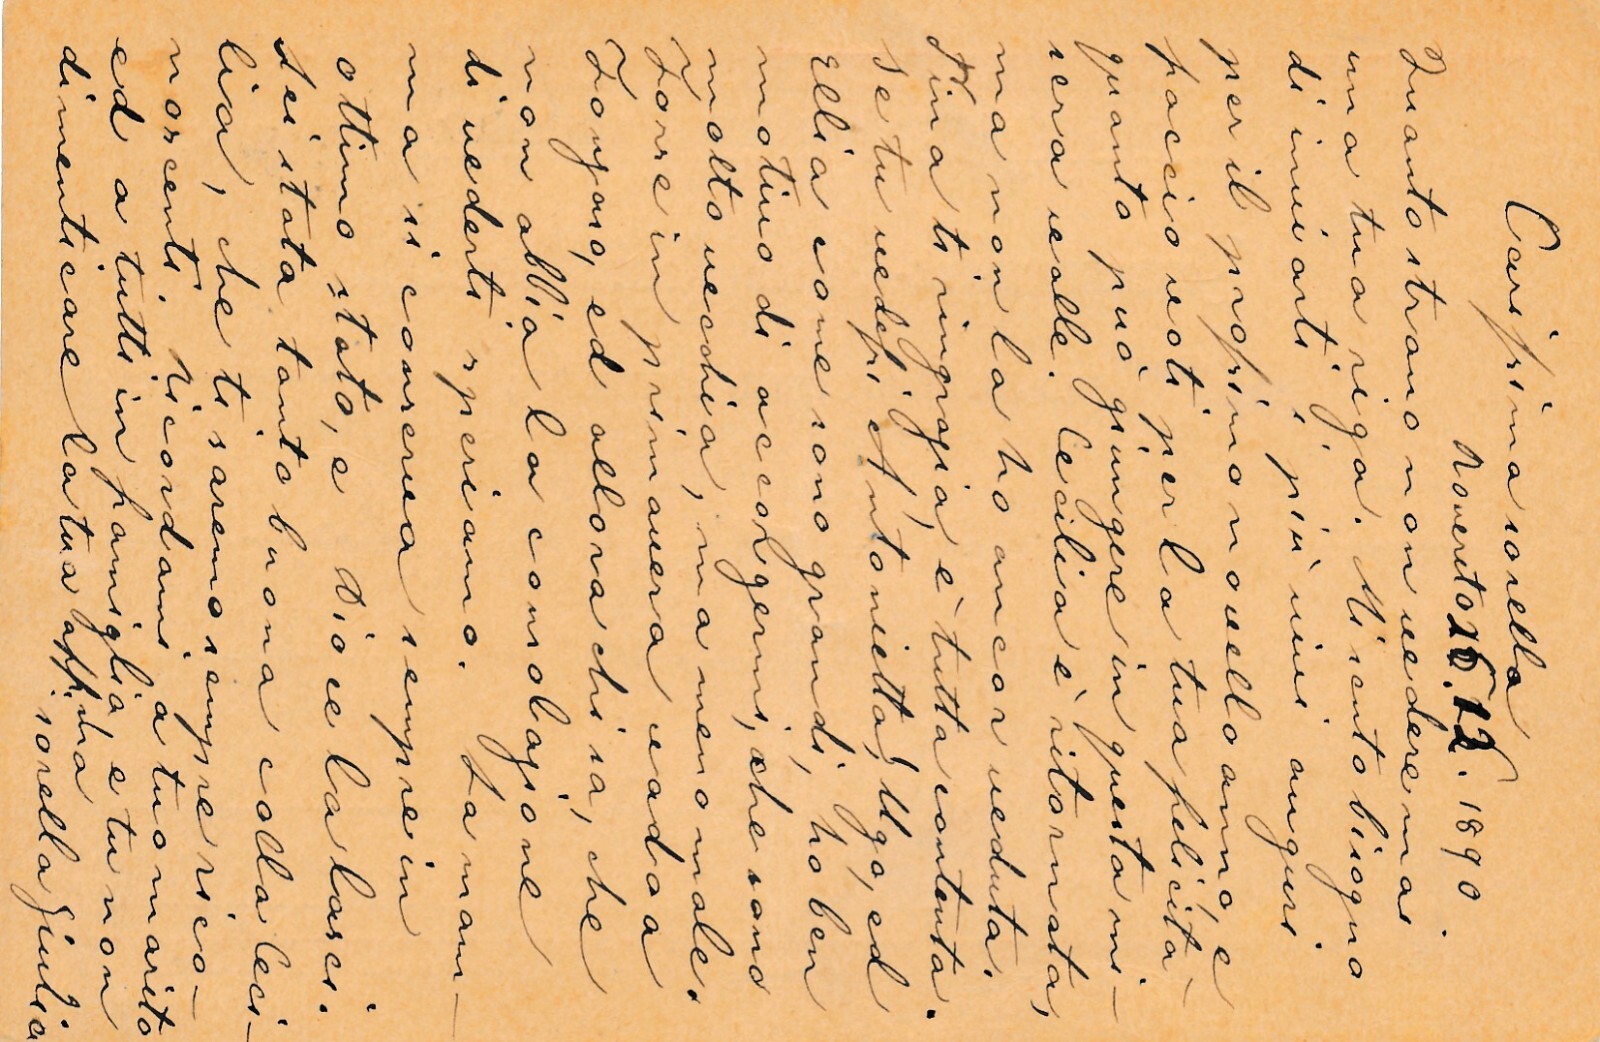 Carissima sorella
Rovereto 26.12.1890.
Quanto strano non vedere mai
una tua riga. Mi sento bisogno
di inviarti i più vivi auguri
per il prossimo novello anno, e
faccio voti per la tua felicità
quanto può giungere in questa mi-
sera valle. Cecilia è ritornata,
ma non la ho ancor veduta.
Nina ti ringrazia, è tutta contenta.
Se tu vedessi Antonietta, Ugo, ed
Elia come sono grandi, ho ben
motivo di accorgermi, che sono
molto vecchia, ma meno male.
Forse in primavera vado a
Zongaso, ed allora chi sà, che
non abbia la consolazione
di vederti speriamo. La mam-
ma si conserva sempre in
ottimo stato, e Dio ce la lasci.
Sei stata tanto buona colla Ceci-
lia, che ti saremo sempre rico-
noscenti. Ricordami a tuo marito
ed a tutti in famiglia, e tu non
dimenticare la tua affma
sorella Giulia